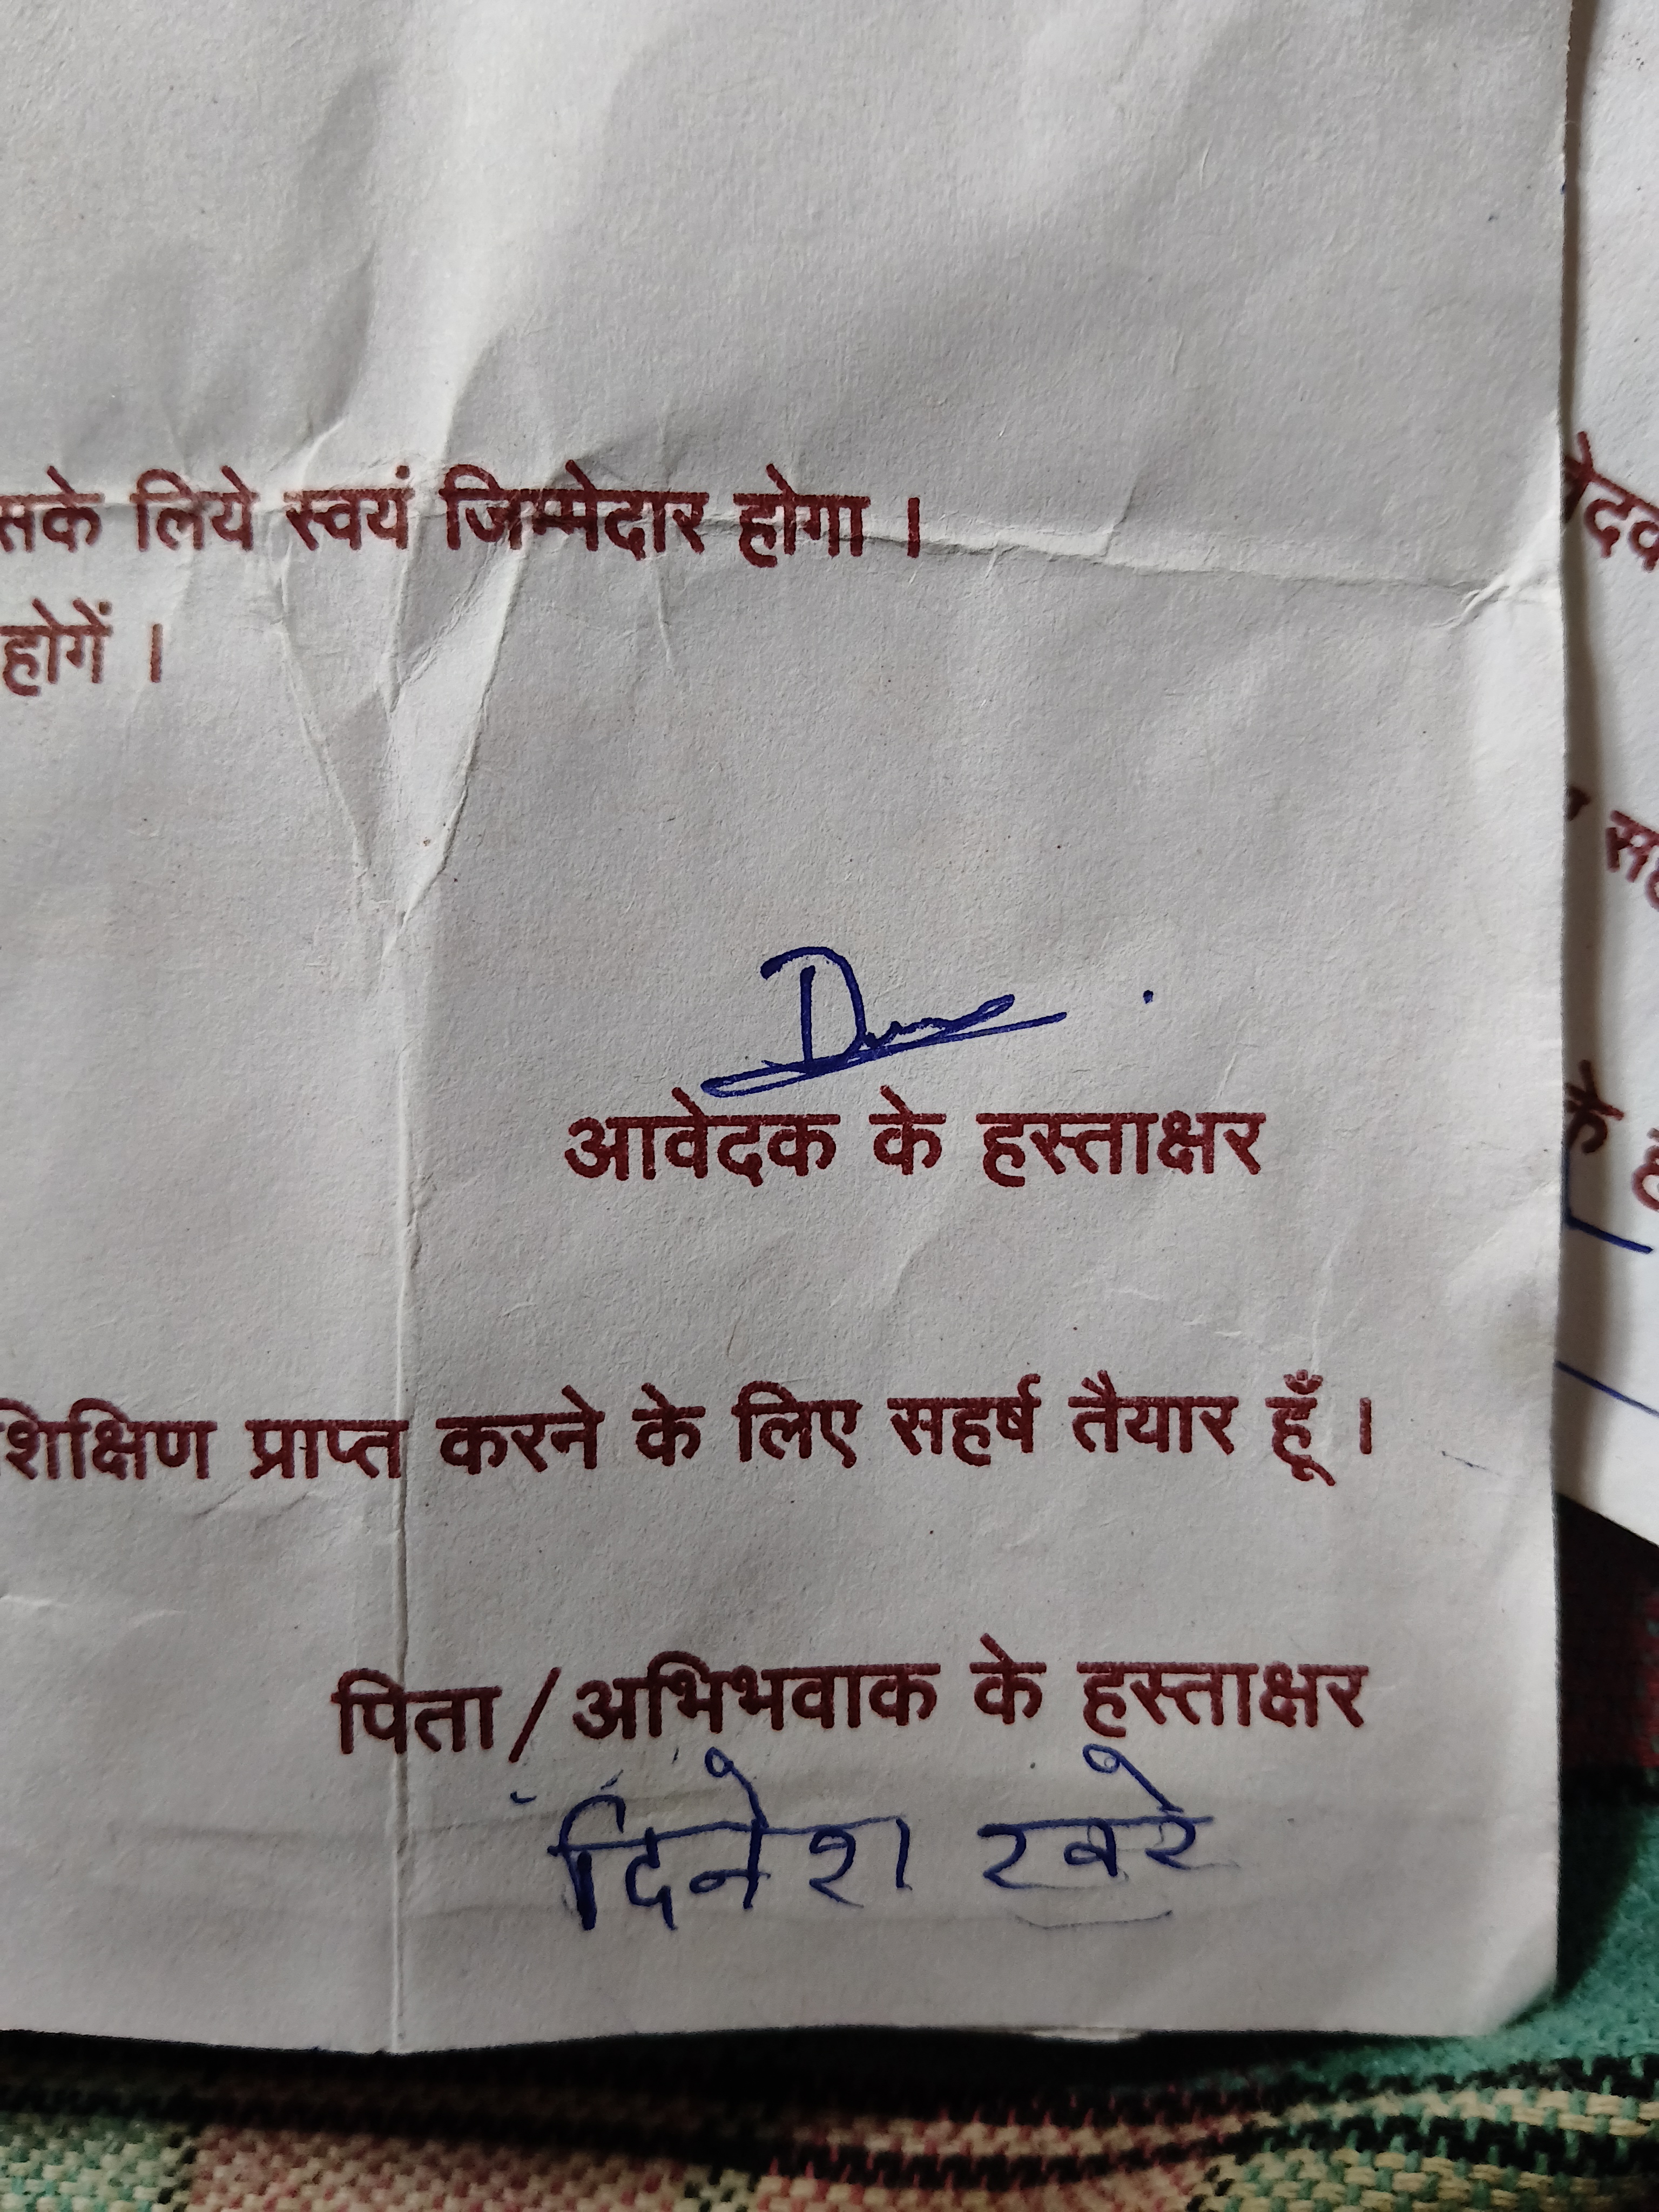 सके लिये स्वयं जिम्मेदार होगा ।
होगें ।
आवेदक के हस्ताक्षर
शिक्षिण प्राप्त करने के लिए सहर्ष तैयार हूँ ।
पिता/अभिभवाक के हस्ताक्षर
दिनेश खरे